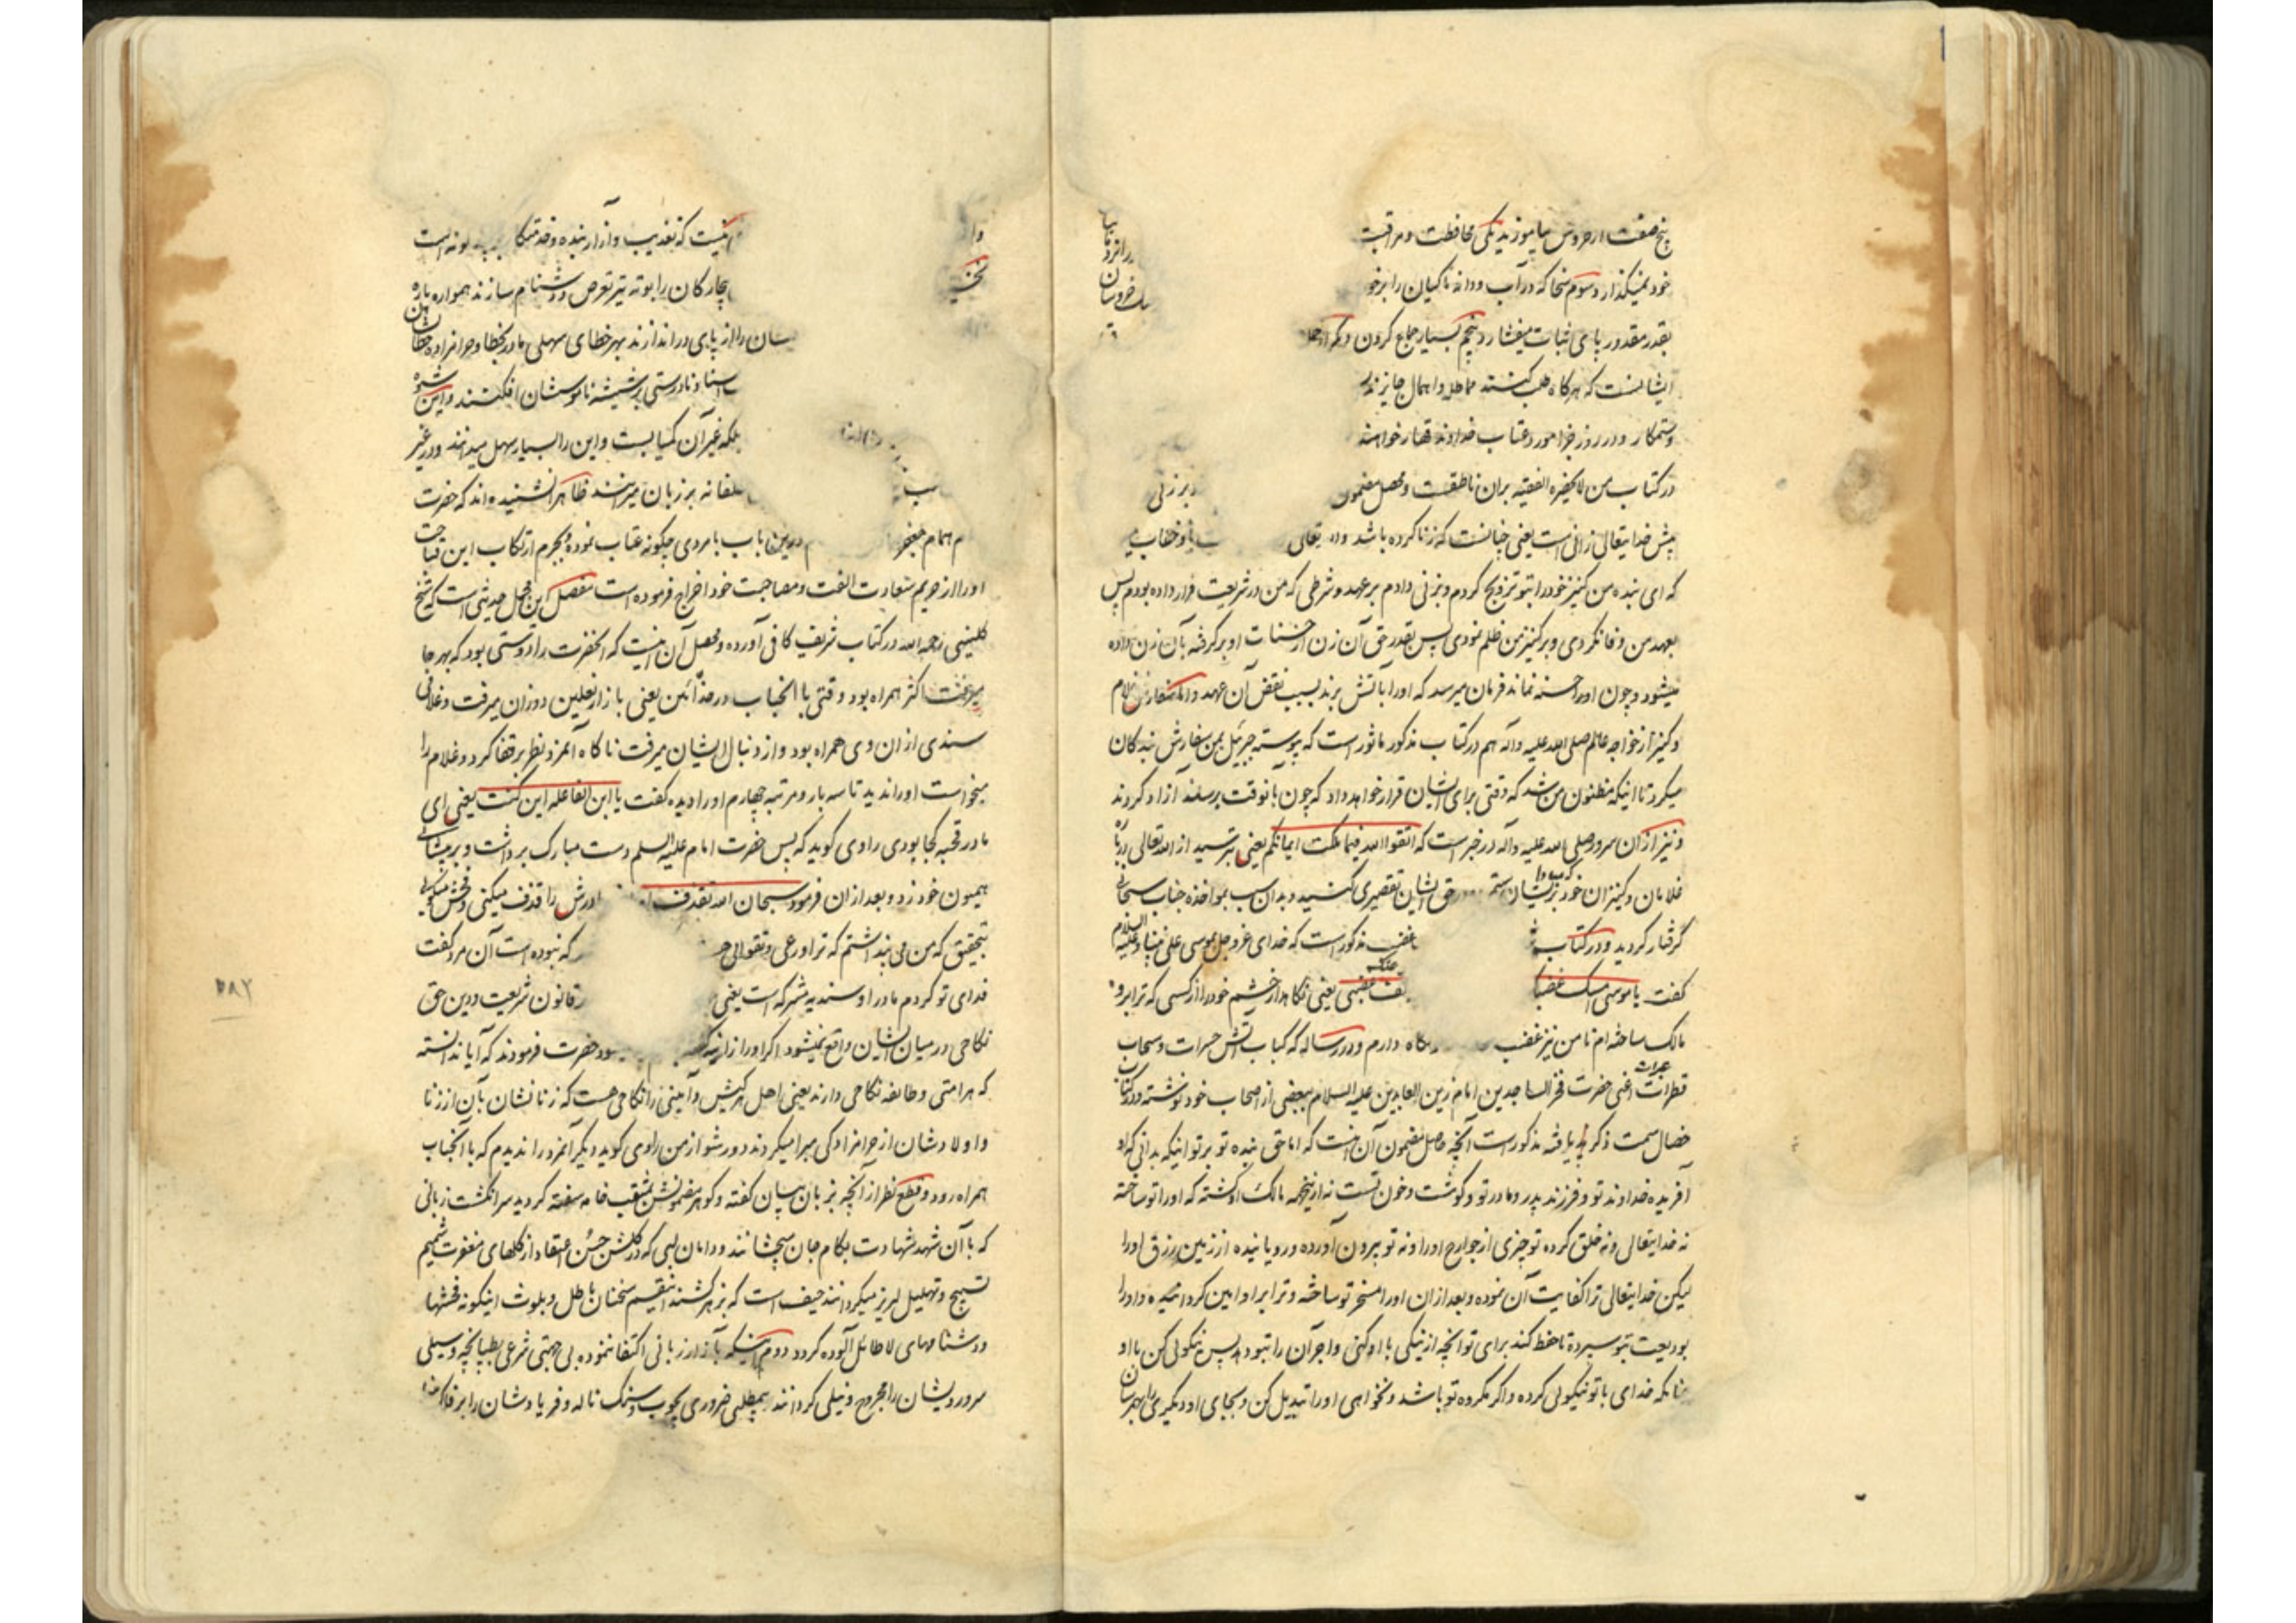 پنج صفت از خروس بیاموزید یکی محافظت و مراقبت
خود نمیگذارد سوم سخا که در آب و دانه ماکیان را بر خو
بقدر مقدور پای ثبات میفشارد پنجم بسیار جماع کردن و
ایشانست که هر گاه طلب کنند مماطله و اهمال جایز ندا
و ستمکار و در روز جزا مورد عتاب خداوند قهار خواهند
در کتاب من لا یحضره الفقیه بران ناطقست و محصل مضمون بر زنی
پیش خدایتعالی زانی است یعنی چنانست که زنا کرده باشد تعالی باو خطاب
که ای بنده من کنیز خود را بتو تزویج کردم و بزنی دادم بر عهد و شرطی که من در شریعت قرار داده بودم پس
بعهد من وفا نکردی و بر کنیز من ظلم نمودی پس بقدر حق آن زن از حسنات او بر گرفته بآن زن داده
میشود و چون او را حسنه نماند فرمان میرسد که او را بآتش برند بسبب نقض آن عهد و اما سفارش غلام
و کنیز از خواجه عالم صلی الله علیه واله هم در کتاب مذکور ماثور است که پیوسته جبرئیل بمن سفارش بندکان
میکرد تا اینکه مظنون من شد که وقتی برای ایشان قرار خواهد داد که چون بانوقت برسند آزاد کردند
و نیز از ان سرور صلی الله علیه واله در خبر است که اتقوا الله فیما ملکت ایمانکم یعنی بترسید از الله تعالی
غلامان و کنیزان خود بر ایشان ستم حق ایشان تقصیری کنید و بدان سبب بمواخذه جناب سبحانی
کرفتار کردید و در کتاب مذکور است که خدای عز و جل بموسی علی نبینا و علیه السلام
کفت یا موسی امسک غضبک غضبی یعنی نکاهدار خشم خود را از کسی که ترا برو
مالک ساخته ام تا من نیز غضب نکاه دارم و در رساله که کباب آتش حسرات و سحاب
قطرات عبرات اعنی حضرت فخر الساجدین امام زین العابدین علیه السلام ببعضی از اصحاب خود نوشته و در کتاب
خصال سمت ذکر یافته مذکور است آنچه حاصل مضمون آن اینست که اما حق بنده تو بر تو اینکه بدانی که او
آفریده خداوند تو و فرزند پدر و مادر تو و کوشت و خون تست نه از اینجهه مالک او کشته که او را تو ساخته
نه خدایتعالی و نه خلق کرده تو چیزی از جوارح او را و نه تو بیرون آورده و رویانیده از زمین رزق او را
لیکن خدایتعالی ترا کفایت آن نموده و بعد از ان او را مسخر تو ساخته و ترا بر او امین کردانیده و او را
بودیعت بتو سپرده تا حفظ کند برای تو انچه از نیکی با او کنی و اجر آن را بتو دهد پس نیکوئی کن با او
چنانکه خدای با تو نیکوئی کرده و اکر مکروه تو باشد و نخواهی او را تبدیل کن و بجای او دیکری را بهم رسان
اینست که تعذیب و آزار بنده و خدمتکار
بیچارکان را بوته تیر تعرض و دشنام سازند همواره
ایشان را از پای در اندازند بهر خطای سهلی مادر بخطا و حرامزاده
و نادرستی بر شیشه ناموسشان افکنند و این شیوه
بلکه غیر آن کسیا بست و این را بسیار سهل میدانند و در غیر
بر زبان میرانند ظاهرا نشنیده اند که حضرت
امام همام جعفر درینباب با مردی چکونه عتاب نموده و بجرم ارتکاب این قباحت
او را از حریم سعادت الفت و مصاحبت خود اخراج فرموده است مفصل این مجمل حدیثی است که شیخ
کلینی رحمه الله در کتاب شریف کافی آورده و محصل آن اینست که انحضرت را دوستی بود که بهر جا
میرفت اکثر همراه بود وقتی با انجناب در حذائین یعنی بازار نعلین دوزان میرفت و غلامی
سندی از ان وی همراه بود و از دنبال ایشان میرفت ناکاه آنمرد نظر بر قفا کرد و غلام را
میخواست او را ندید تا سه بار و مرتبه چهارم او را دیده کفت یا ابن الفاعله این کنت یعنی ای
مادر قحبه کجا بودی راوی کوید که پس حضرت امام علیه السلم دست مبارک برداشت و بر پیشانی
همیون خود زد و بعد از ان فرمود سبحان الله تقذف مادرش را قذف میکنی و فحش میکوئی
بتحقیق که من می پنداشتم که ترا ورعی و تقوائی که نبوده است آن مرد کفت
فدای تو کردم مادر او سندیه مشرکه است یعنی قانون شریعت و دین حق
نکاحی در میان ایشان واقع نمیشود اکر او را حضرت فرمودند که آیا ندانسته
که هر امتی و طائفه نکاحی دارند یعنی اهل هر کیش و آئینی را نکاحی هست که زنانشان بآن از زنا
و اولادشان از حرامزادکی مبرا میکردند دور شو از من راوی کوید دیکر آنمرد را ندیدم که با انجناب
همراه رود و قطع نظر از آنچه بزبان بیان کفته و کوهر مضمونش بمثقب خامه سفته کردید سر انکشت زبانی
که با آن شهد شهادت بکام جان میچشانند و دامان لبی که در کلشن حسن اعتقاد از کلهای مغفرت شمیم
تسبیح و تهلیل لبریز میکردانند حیف است که بزهر کشنده اینقسم سخنان باطل و بلوث اینکونه فحشها
و دشنامهای لاطائل آلوده کردد دوم اینکه بآزار زبانی اکتفا ننموده بی جهتی شرعی بطپانچه و سیلی
سر و رویشان را مجروح و نیلی کردانند بی مطلبی ضروری بچوب و سنک ناله و فریادشان را بر افلاک
۲۸۷